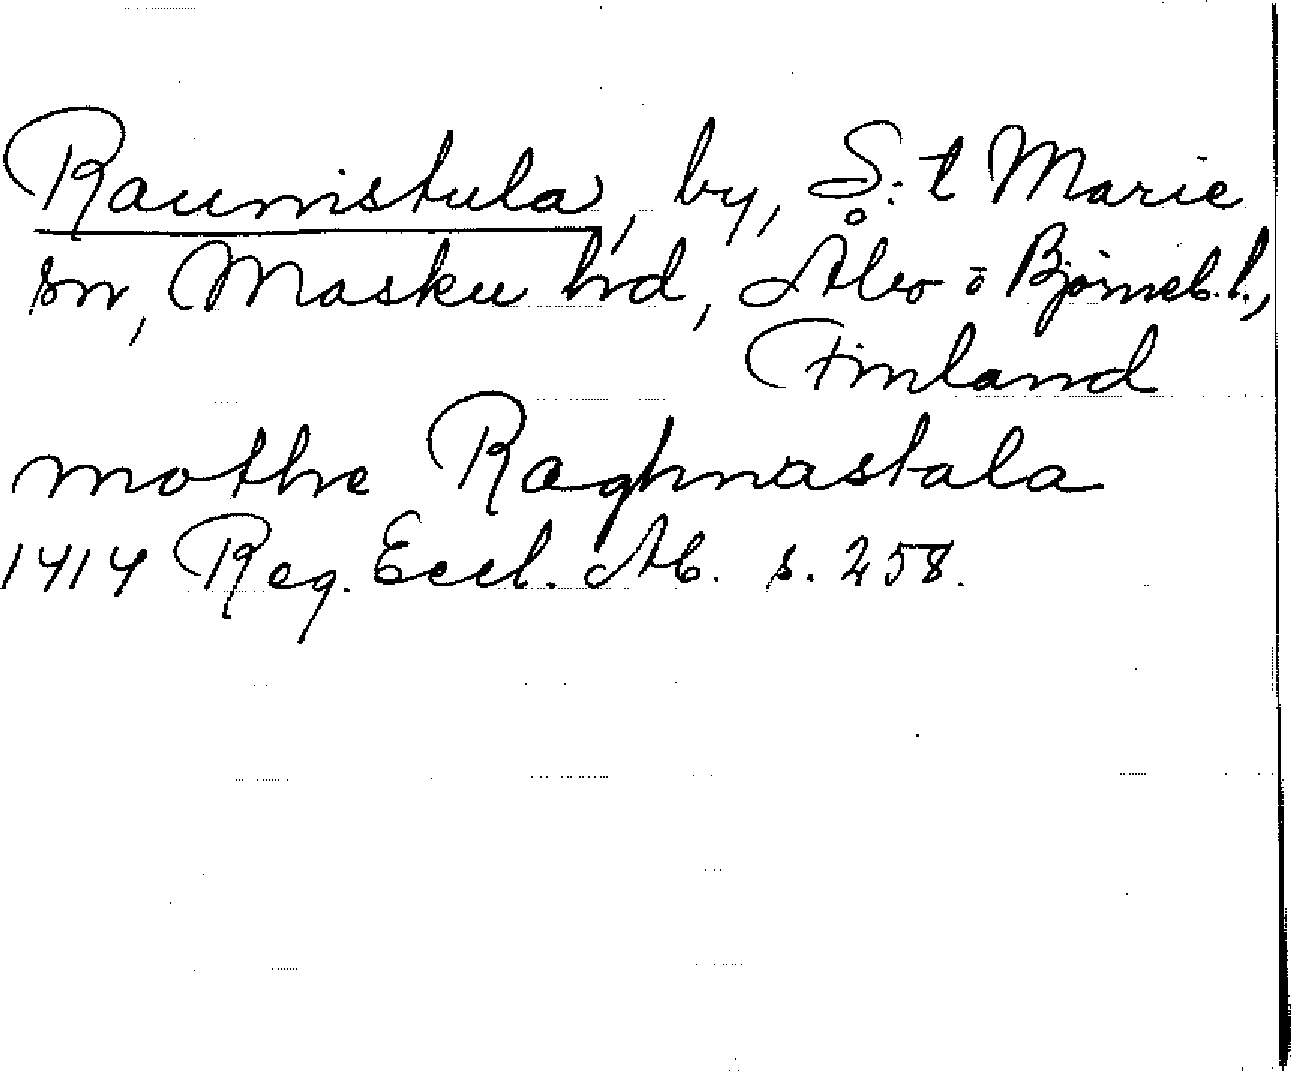 Raunistula, by, S:t Marie
sn, Masku hrd, Åbo o Björneb. l.,
Finland
mothe Raghnastala
1414 Reg. Eccl. Ab. s. 258.